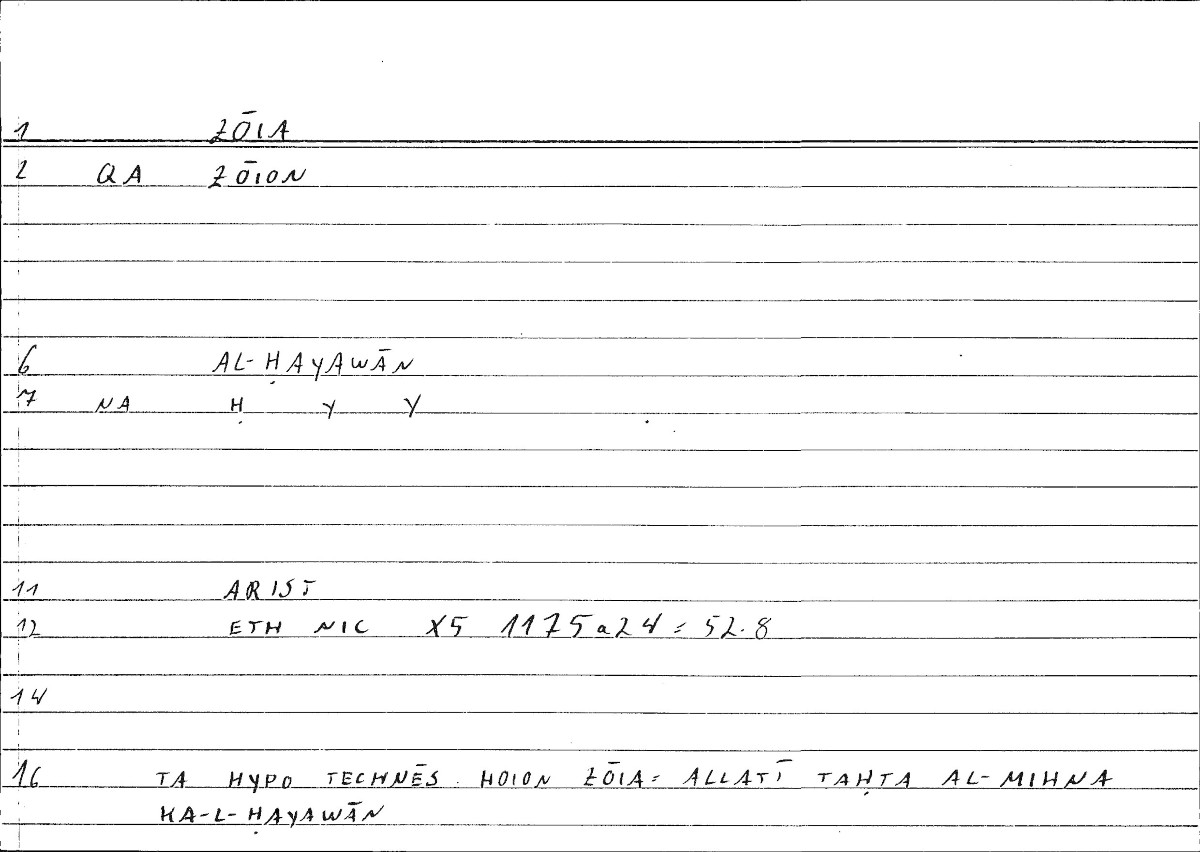 1 ZŌIA
2 QA ZŌION
6 AL-ḤAYAWĀN
7 NA Ḥ Y Y
11 ARIST
12 ETH NIC X5 1175a24 = 52.8
14
16 TA HYPO TECHNĒS HOION ZŌIA = ALLATĪ TAḤTA AL-MIHNA
KA-L-ḤAYAWĀN